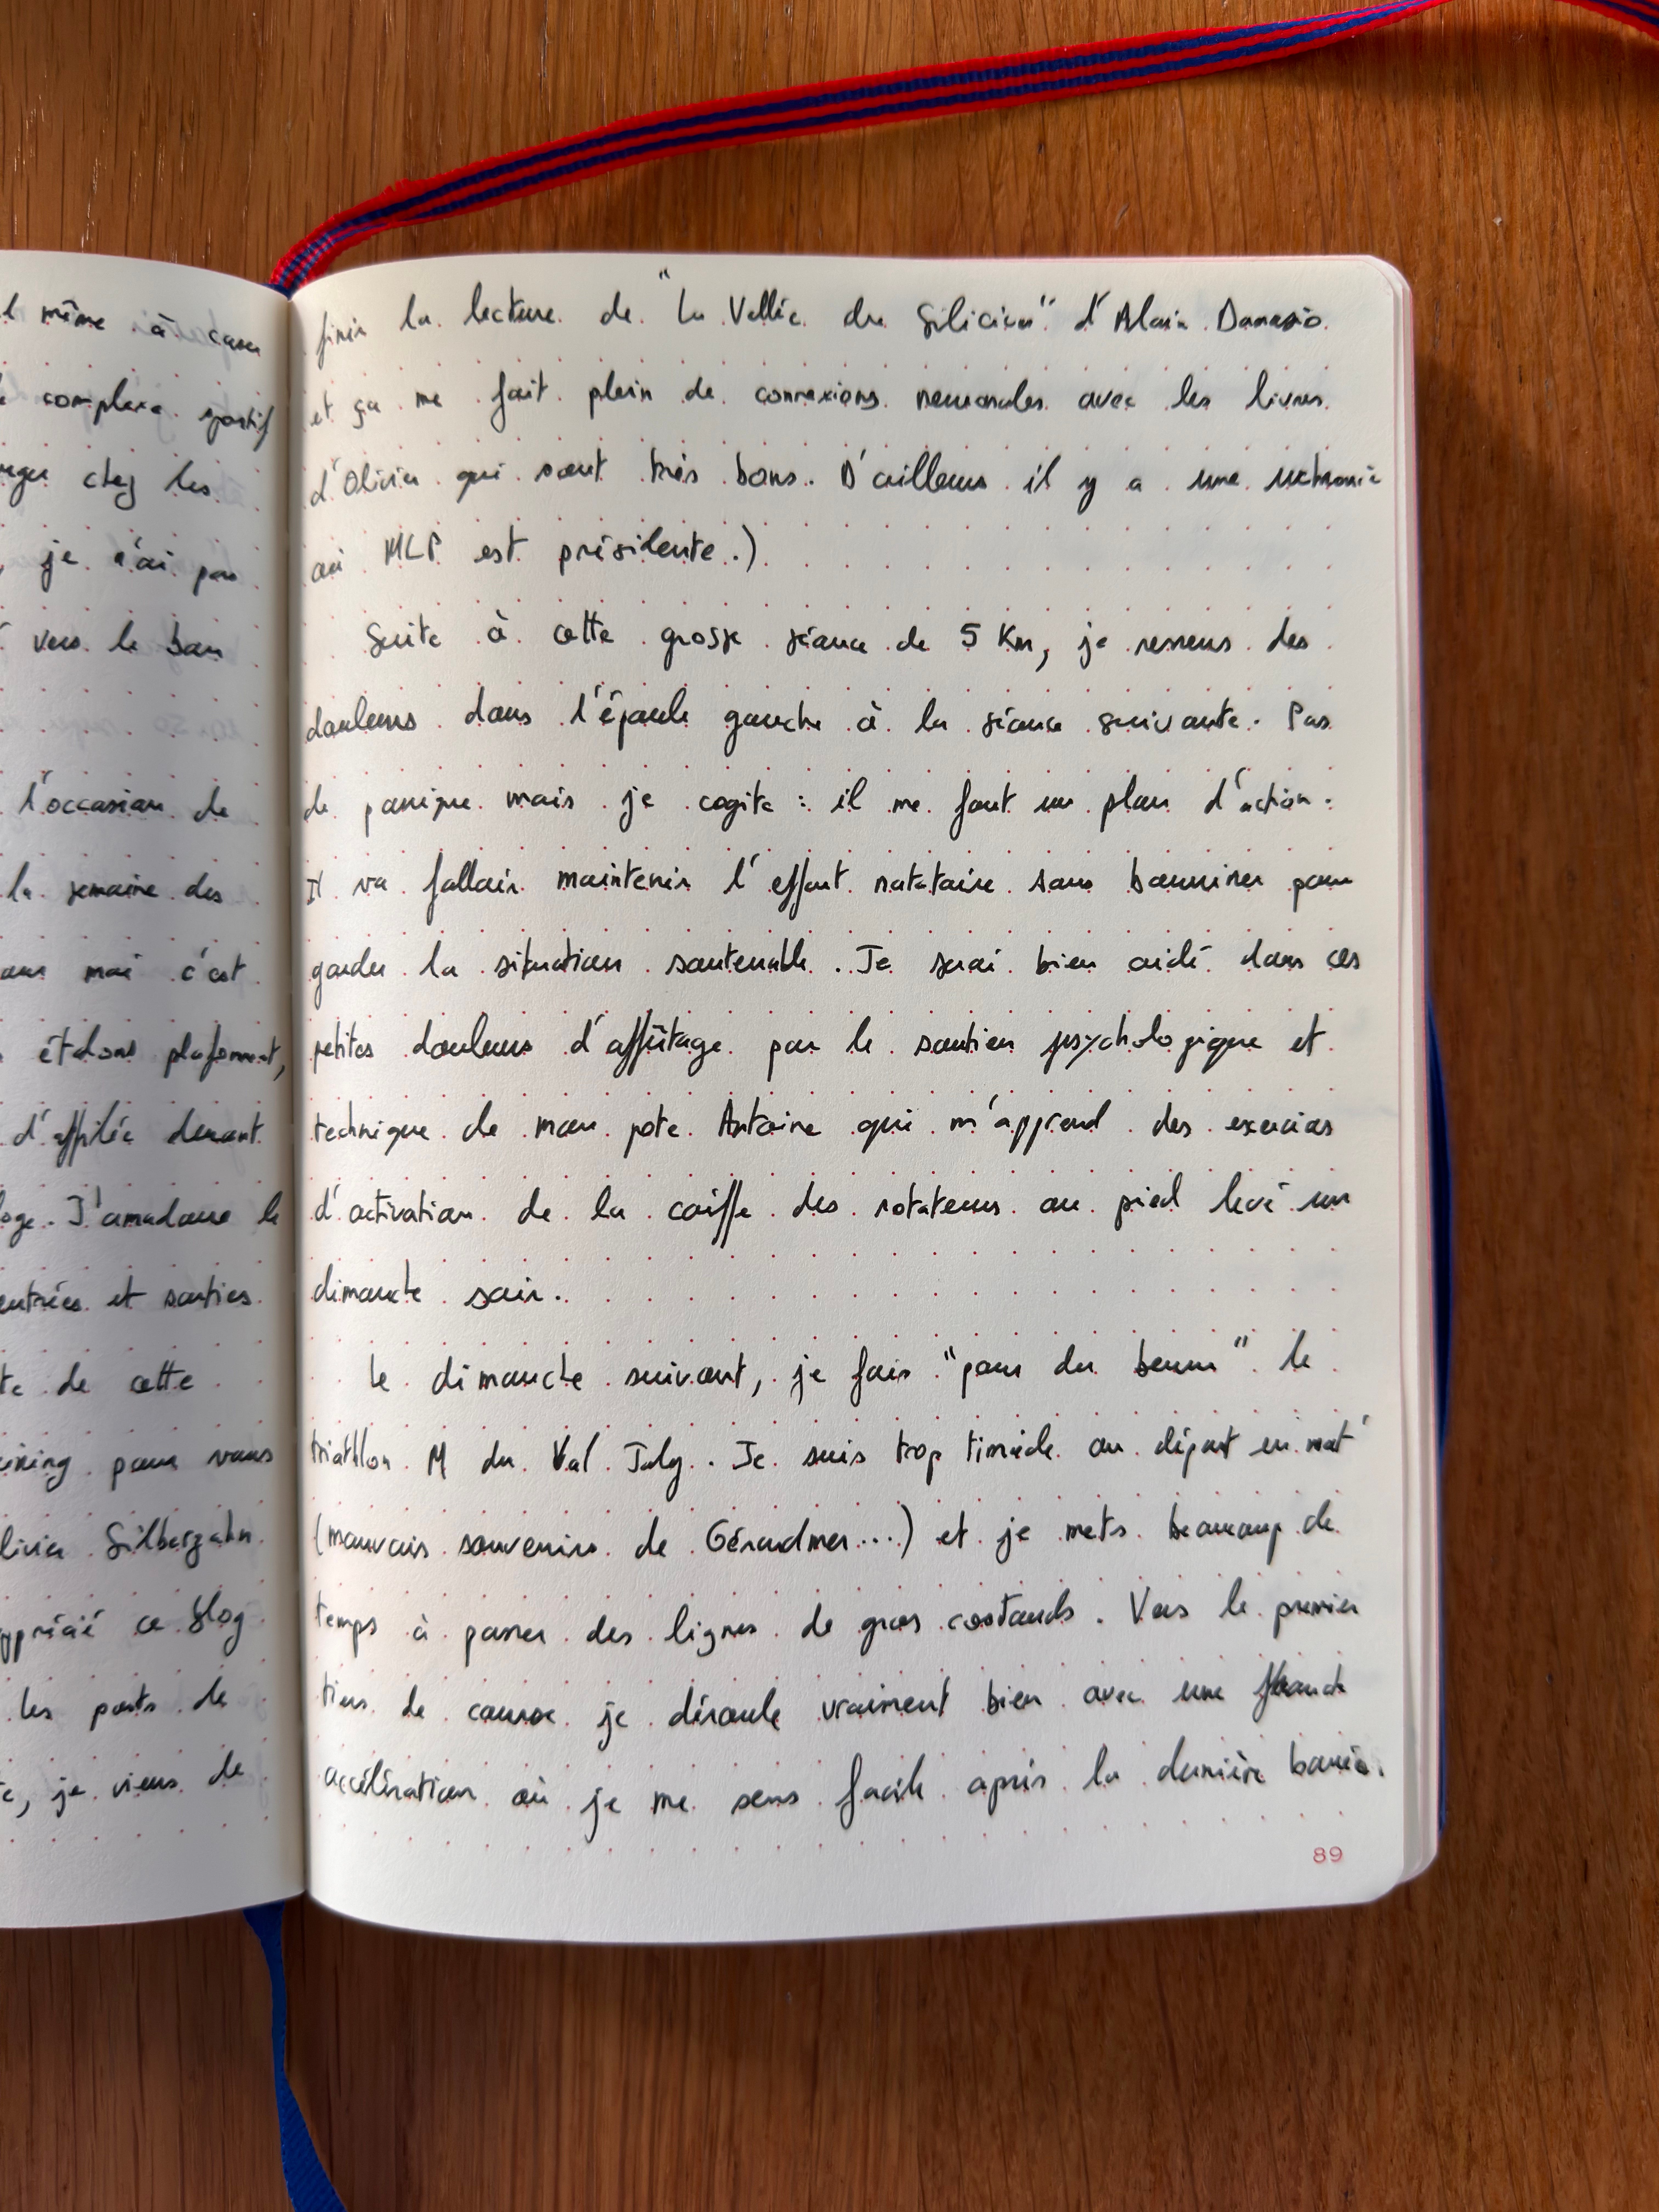 l même à
complexe sportif
chez les
je n'ai pas
vers le bon
l'occasion de
la semaine des
moi c'est
étalons plafonnent,
d'affilée devant
J'amadoue le
entrées et sorties
de cette
pour vous
Olivier Silberzahn
apprécié ce blog
les posts de
je viens de
finir la lecture de "La Vallée du Silicium" d'Alain Damasio
et ça me fait plein de connexions neuronales avec les livres
d'Olivier qui sont très bons. D'ailleurs il y a une uchronie
où MLP est présidente.)
Suite à cette grosse séance de 5 Km, je ressens des
douleurs dans l'épaule gauche à la séance suivante. Pas
de panique mais je cogite : il me faut un plan d'action.
Il va falloir maintenir l'effort natatoire sans bourriner pour
garder la situation soutenable. Je serai bien aidé dans ces
petites douleurs d'affûtage par le soutien psychologique et
technique de mon pote Antoine qui m'apprend des exercices
d'activation de la coiffe des rotateurs au pied levé un
dimanche soir.
Le dimanche suivant, je fais "pour du beurre" le
triathlon M du Val Joly. Je suis trop timide au départ en nat'
(mauvais souvenirs de Gérardmer...) et je mets beaucoup de
temps à passer des lignes de gros costauds. Vers le premier
tiers de course je déroule vraiment bien avec une franche
accélération où je me sens facile après la dernière bouée.
89